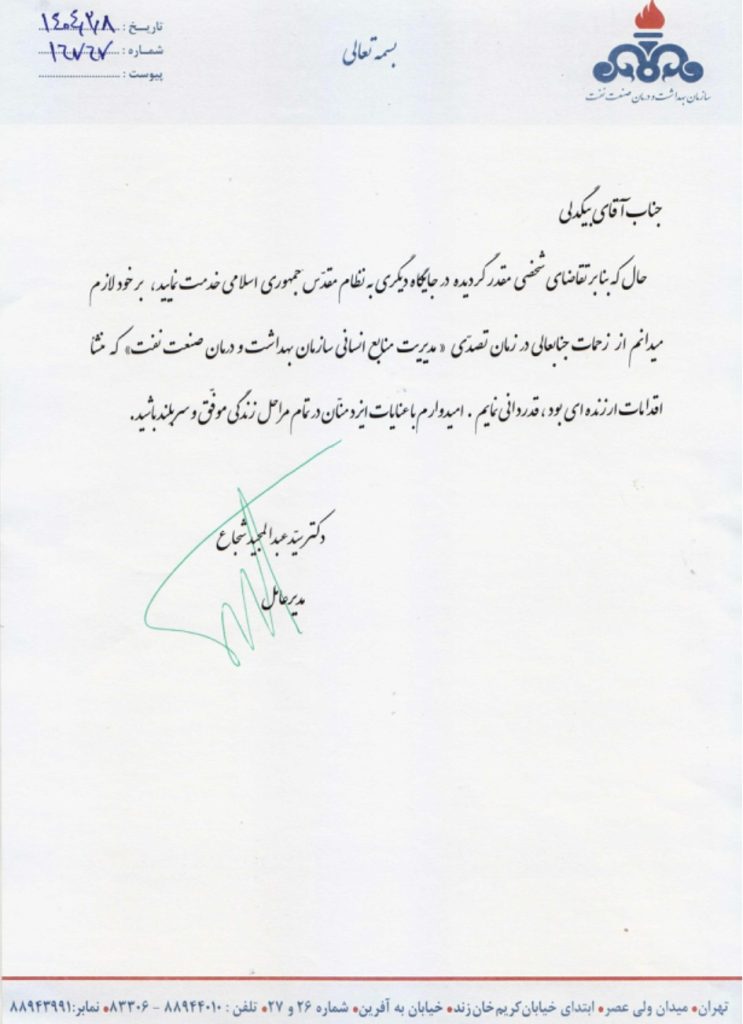 بسمه تعالی
تاریخ : ۱۴۰۴/۲/۸
شماره :
پیوست :
سازمان بهداشت و درمان صنعت نفت
جناب آقای بیگدلی
حال که بنابر تقاضای شخصی مقدر گردیده در جایگاه دیگری به نظام مقدّس جمهوری اسلامی خدمت نمایید، بر خود لازم
میدانم از زحمات جنابعالی در زمان تصدّی «مدیریت منابع انسانی سازمان بهداشت و درمان صنعت نفت» که منشا
اقدامات ارزنده ای بود، قدردانی نمایم. امیدوارم با عنایات ایزد منّان در تمام مراحل زندگی موفّق و سربلند باشید.
دکتر سیّد عبدالمجید شجاع
مدیرعامل
تهران• میدان ولی عصر• ابتدای خیابان کریم خان زند• خیابان به آفرین• شماره ۲۶ و ۲۷• تلفن : ۸۸۹۴۴۰۱۰ - ۸۳۳۰۶• نمابر:۸۸۹۴۳۹۹۱